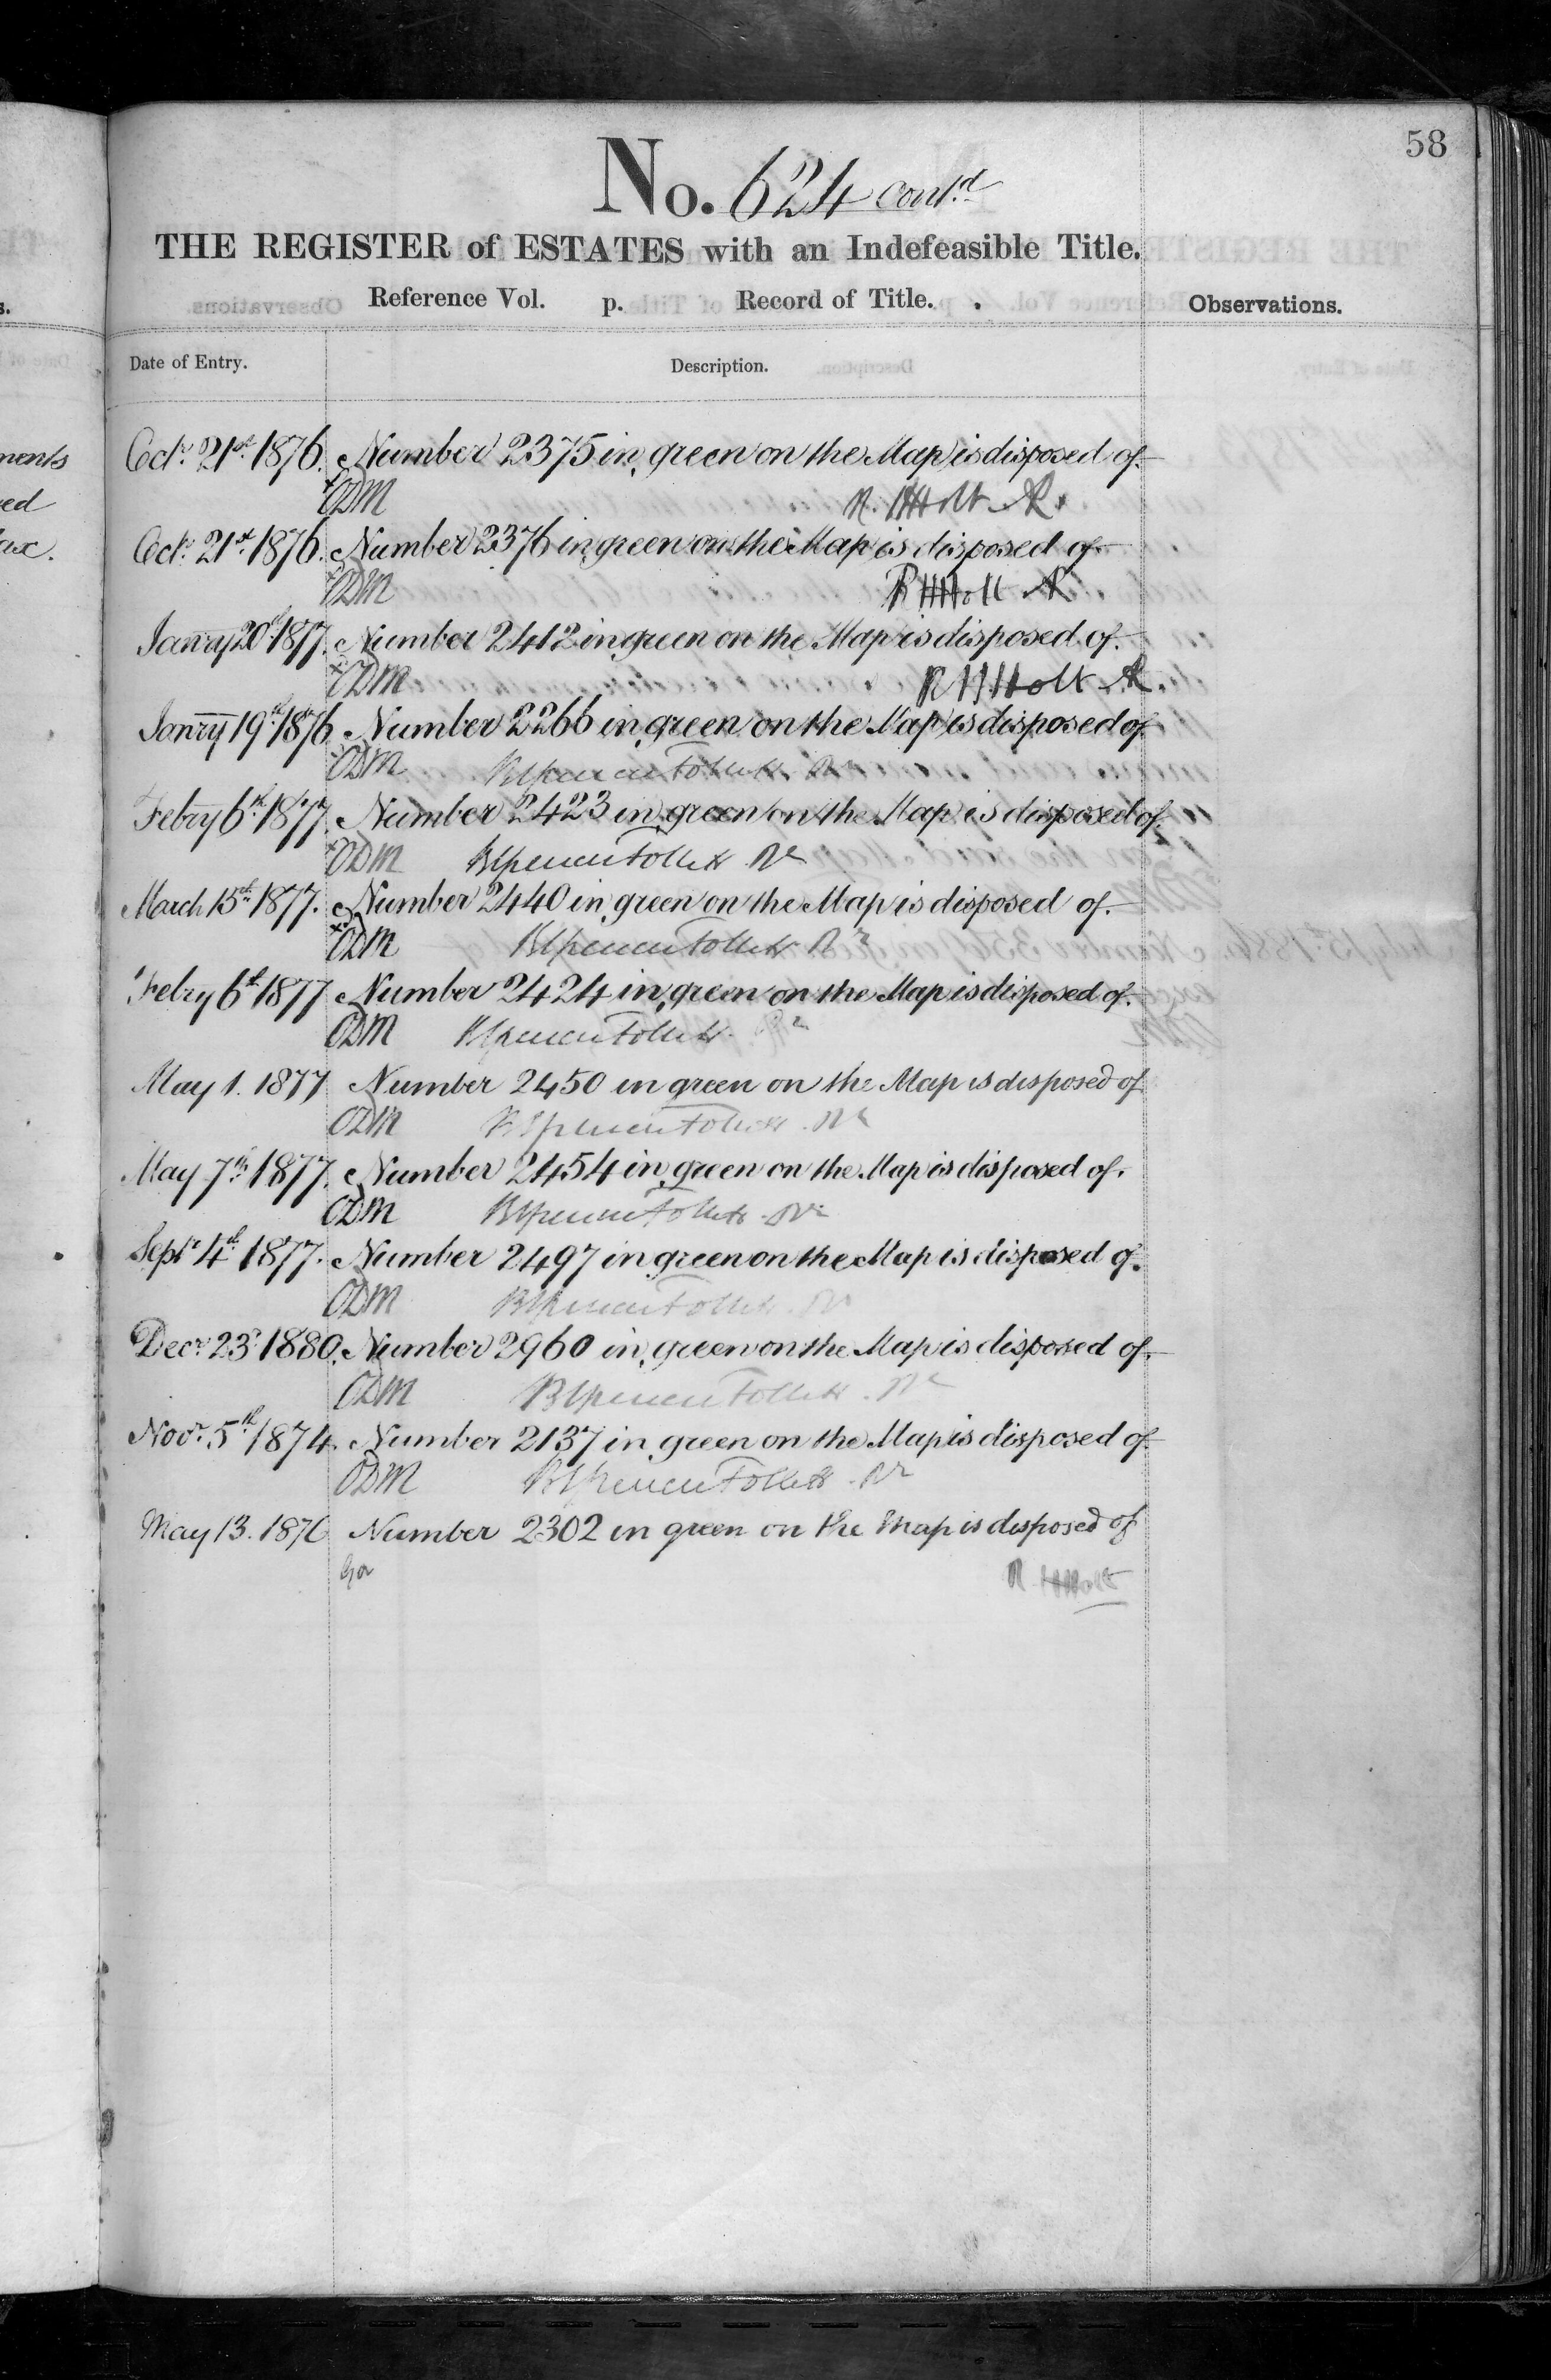 58
No. 624 contd
THE REGISTER of ESTATES with an Indefeasible Title.
Reference Vol. p. Record of Title.
Observations.
Date of Entry. Description.
Octr. 21st. 1876. Number 2375 in green on the Map is disposed of.
ODM R. H Holt AR.
Octr. 21st. 1876. Number 2376 in green on the Map is disposed of.
ODM R H Holt AR
Janry 20th 1877. Number 2412 in green on the Map is disposed of.
ODM R H Holt AR.
Janry 19th. 1876 Number 2266 in green on the Map is disposed of
ODM
Febry 6th. 1877. Number 2423 in green on the Map is disposed of.
ODM
March 15th. 1877. Number 2440 in green on the Map is disposed of.
ODM
Febry 6th 1877 Number 2424 in green on the Map is disposed of.
ODM
May 1. 1877 Number 2450 in green on the Map is disposed of
ODM
May 7th. 1877. Number 2454 in green on the Map is disposed of.
ODM
Sept. 4th. 1877. Number 2497 in green on the Map is disposed of.
ODM
Decr. 23d. 1880. Number 2960 in green on the Map is disposed of.
ODM
Novr. 5th. 1874. Number 2137 in green on the Map is disposed of
ODM
May 13. 1876 Number 2302 in green on the Map is disposed of
R H Holt
nents
ed